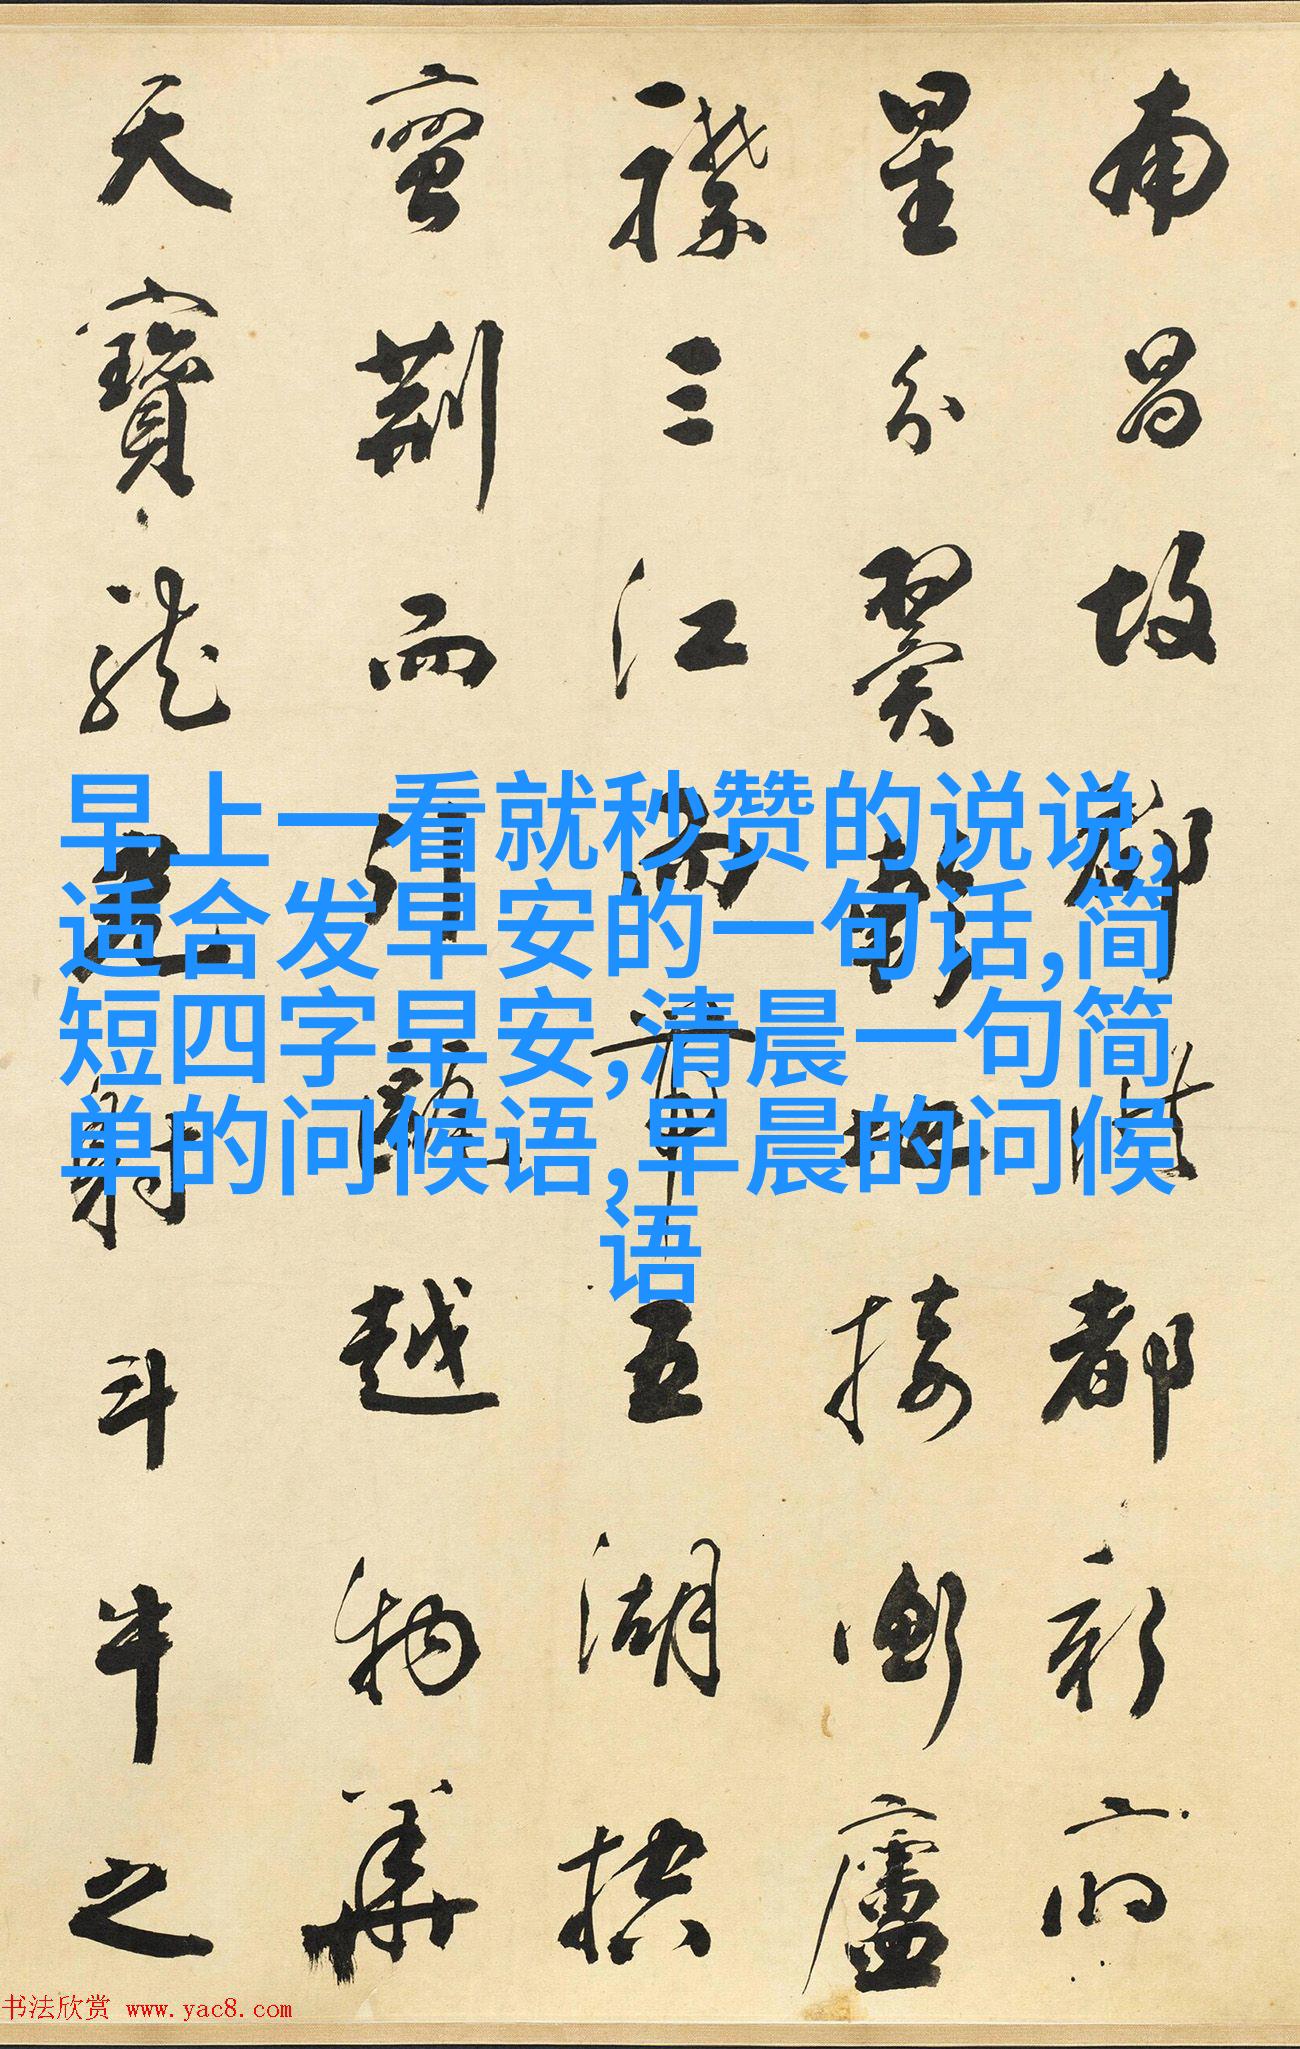 南昌故郡洪都新府
星分翼軫地接衡廬
襟三江而帶五湖控
蛮荆而引甌越物華
天寶龍光射斗牛之
早上一看就秒赞的说说,
适合发早安的一句话,简
短四字早安,清晨一句简
单的问候语,早晨的问候
语
书法欣赏 www.yac8.com